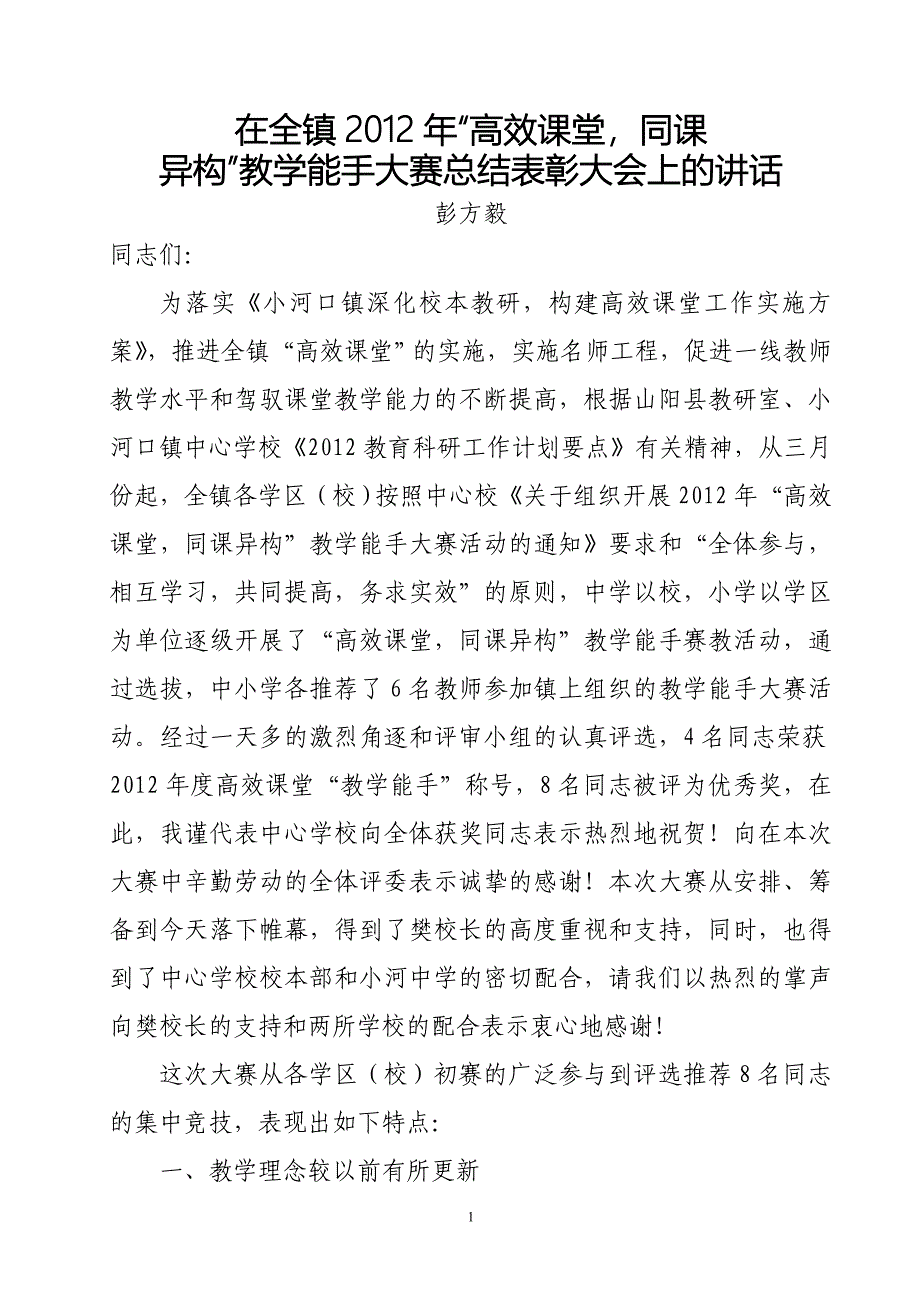 在全镇 2012 年“高效课堂，同课
异构”教学能手大赛总结表彰大会上的讲话
彭方毅
同志们：
为落实《小河口镇深化校本教研，构建高效课堂工作实施方
案》，推进全镇“高效课堂”的实施，实施名师工程，促进一线教师
教学水平和驾驭课堂教学能力的不断提高，根据山阳县教研室、小
河口镇中心学校《2012 教育科研工作计划要点》有关精神，从三月
份起，全镇各学区（校）按照中心校《关于组织开展 2012 年“高效
课堂，同课异构”教学能手大赛活动的通知》要求和“全体参与，
相互学习，共同提高，务求实效”的原则，中学以校，小学以学区
为单位逐级开展了“高效课堂，同课异构”教学能手赛教活动，通
过选拔，中小学各推荐了 6 名教师参加镇上组织的教学能手大赛活
动。经过一天多的激烈角逐和评审小组的认真评选，4 名同志荣获
2012 年度高效课堂“教学能手”称号，8 名同志被评为优秀奖，在
此，我谨代表中心学校向全体获奖同志表示热烈地祝贺！向在本次
大赛中辛勤劳动的全体评委表示诚挚的感谢！本次大赛从安排、筹
备到今天落下帷幕，得到了樊校长的高度重视和支持，同时，也得
到了中心学校校本部和小河中学的密切配合，请我们以热烈的掌声
向樊校长的支持和两所学校的配合表示衷心地感谢！
这次大赛从各学区（校）初赛的广泛参与到评选推荐 8 名同志
的集中竞技，表现出如下特点：
一、教学理念较以前有所更新
1